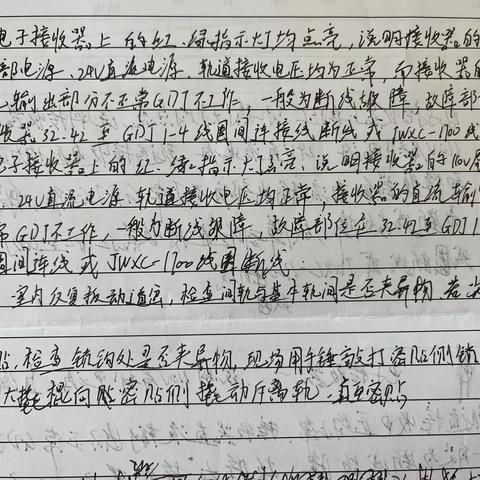 电子接收器上的红.绿指示灯均点亮，说明接收器的
部电源、24V直流电源、轨道接收电压均为正常，而接收器的
输出部分不正常GDJ不工作，一般为断线故障，故障部
收器32.42至GDJ1-4线圈间连接线断线或JWXC-1700线
电子接收器上的红、绿指示灯点亮、说明接收器的110V局
、24V直流电源、轨道接收电压均正常，接收器的直流输
GDJ不工作，一般为断线故障，故障部位在32.42至GDJ1
圈间连线或JWXC-1700线圈断线.
室内反复扳动道岔，检查间轨与基本轨间是否夹异物 若尖
贴，检查锁沟处是否夹异物，现场用手锤敲打密贴侧锁
大撬棍向贴密贴侧撬动斥离轨，直至密贴